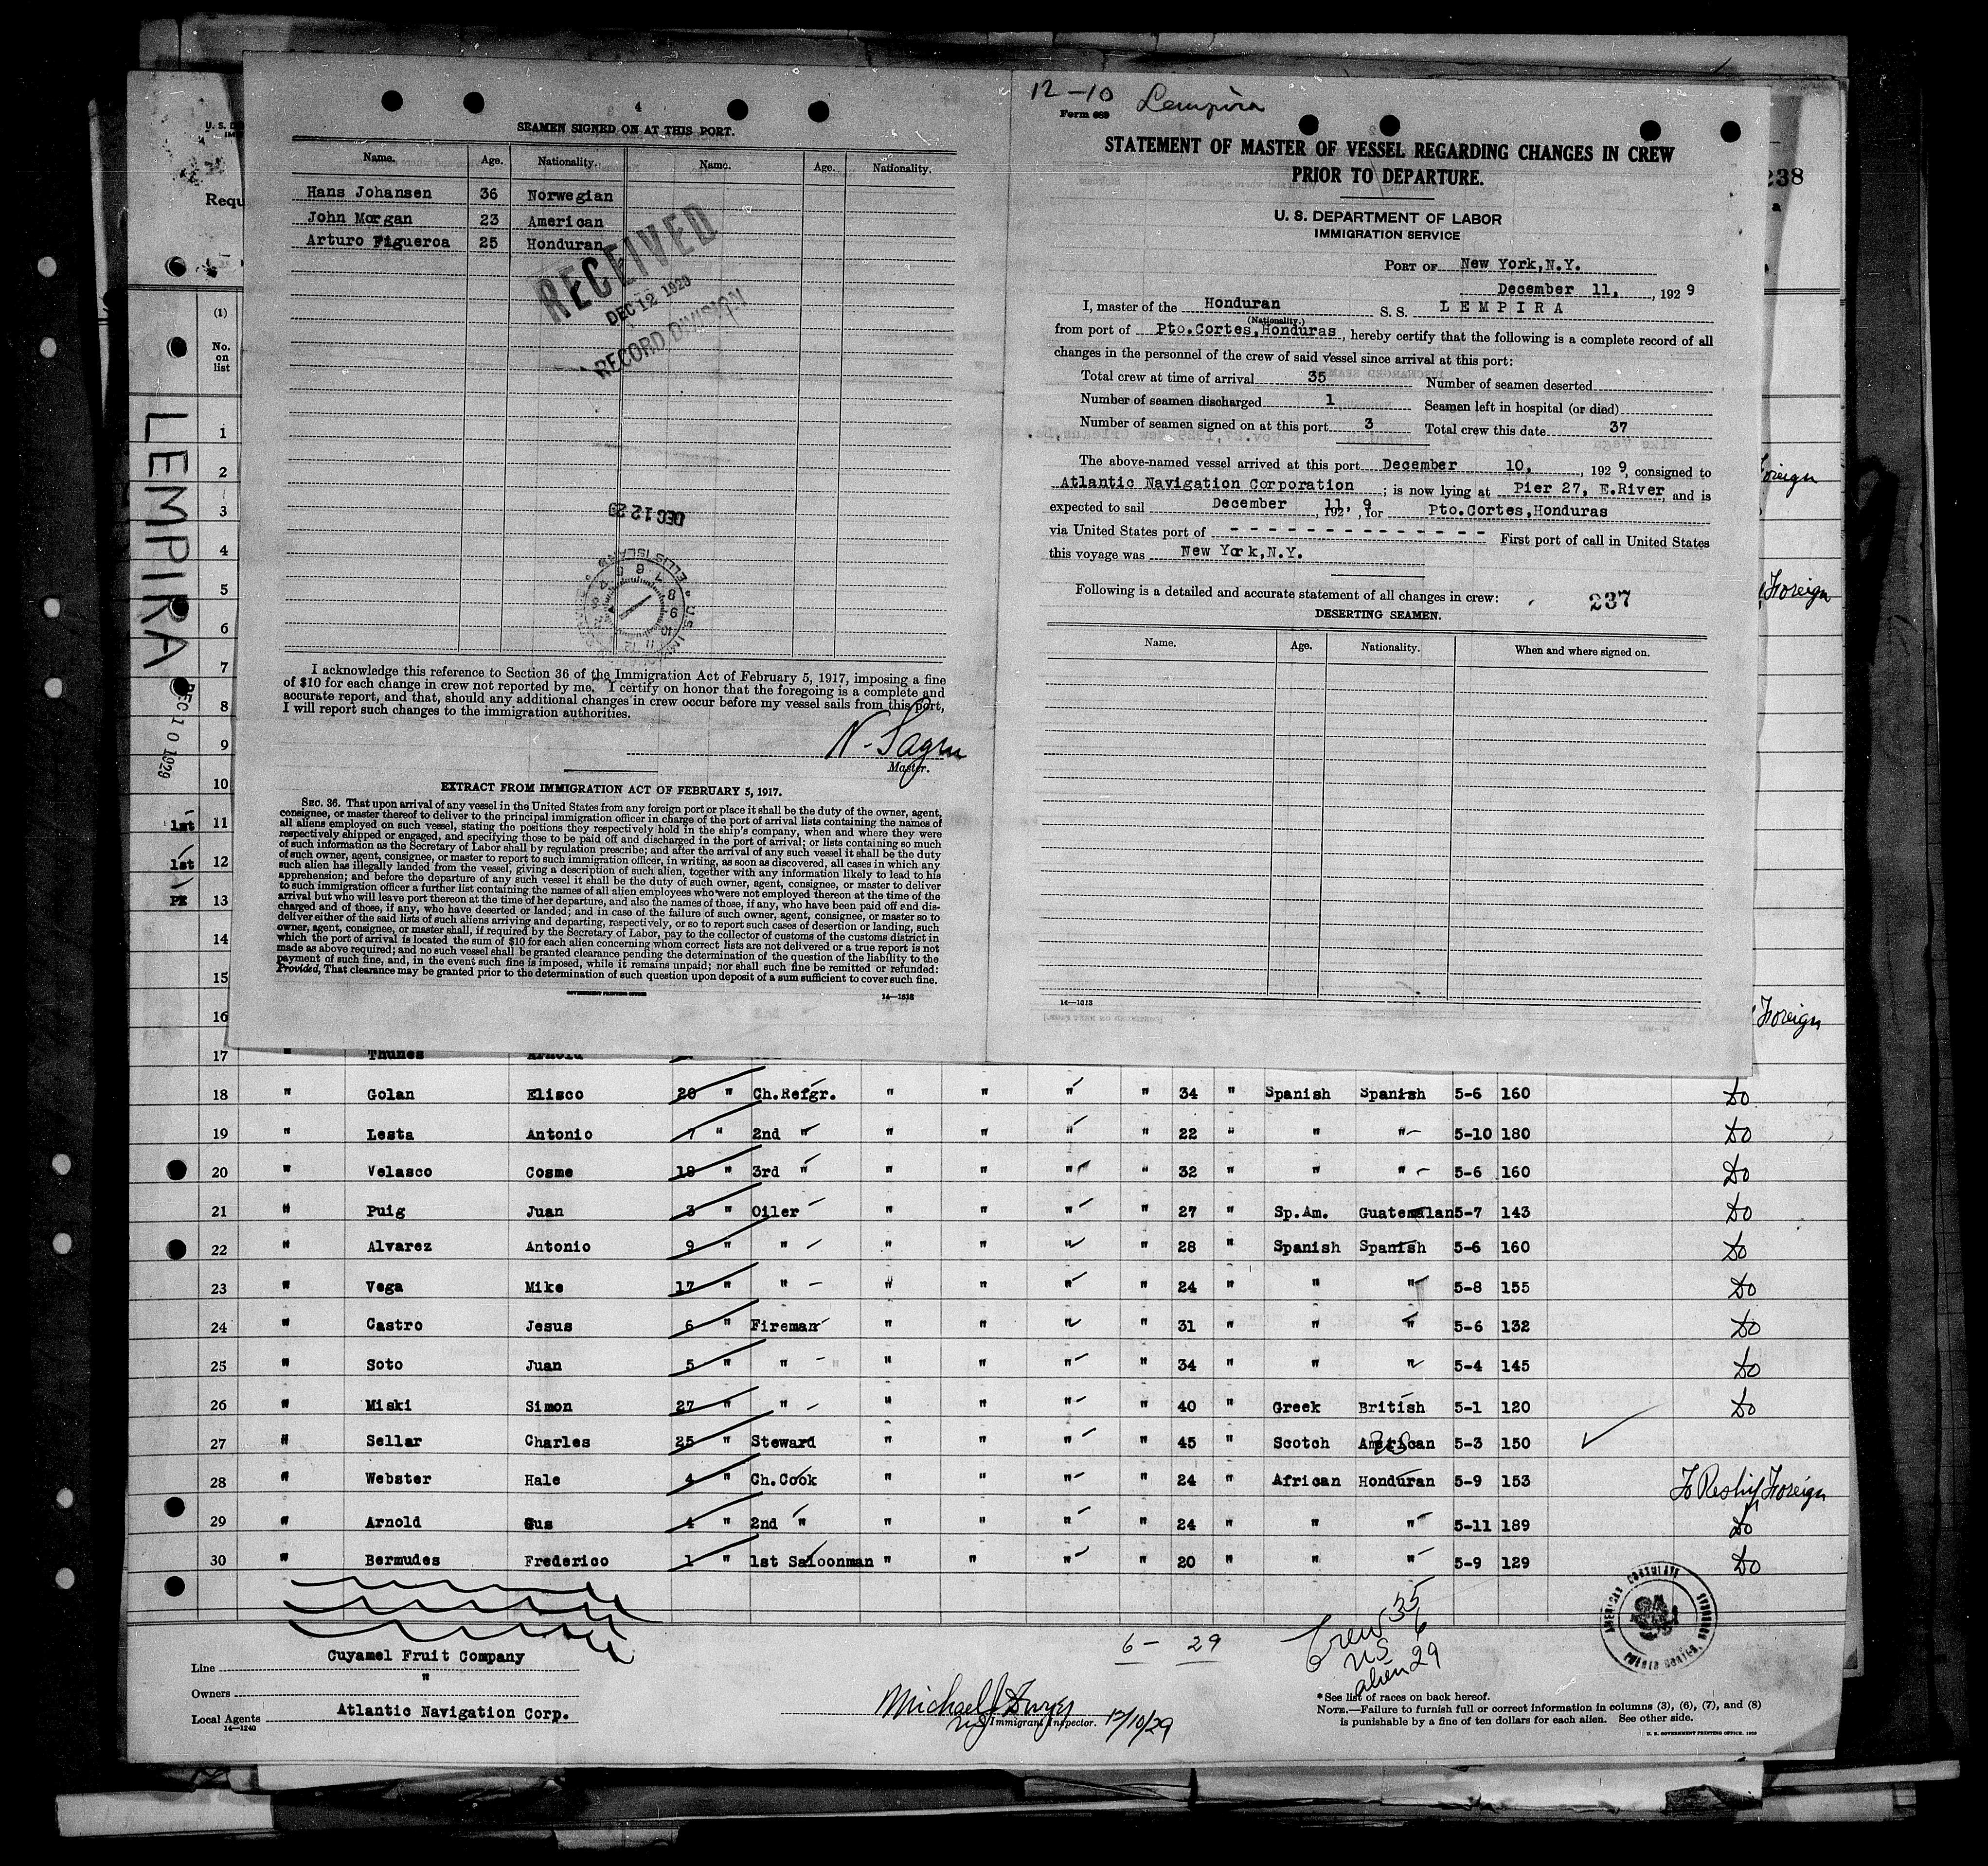 4
SEAMEN SIGNED ON AT THIS PORT.
Name. Age. Nationality. Name. Age. Nationality.
Hans Johansen 36 Norwegian
John Morgan 23 American
Arturo Figueroa 25 Honduran
RECEIVED
DEC 12 1929
RECORD DIVISION
DEC 12 29
I acknowledge this reference to Section 36 of the Immigration Act of February 5, 1917, imposing a fine
of $10 for each change in crew not reported by me. I certify on honor that the foregoing is a complete and
accurate report, and that, should any additional changes in crew occur before my vessel sails from this port,
I will report such changes to the immigration authorities.
Master.
EXTRACT FROM IMMIGRATION ACT OF FEBRUARY 5, 1917.
SEC. 36. That upon arrival of any vessel in the United States from any foreign port or place it shall be the duty of the owner, agent,
consignee, or master thereof to deliver to the principal immigration officer in charge of the port of arrival lists containing the names of
all aliens employed on such vessel, stating the positions they respectively hold in the ship's company, when and where they were
respectively shipped or engaged, and specifying those to be paid off and discharged in the port of arrival; or lists containing so much
of such information as the Secretary of Labor shall by regulation prescribe; and after the arrival of any such vessel it shall be the duty
of such owner, agent, consignee, or master to report to such immigration officer, in writing, as soon as discovered, all cases in which any
such alien has illegally landed from the vessel, giving a description of such alien, together with any information likely to lead to his
apprehension; and before the departure of any such vessel it shall be the duty of such owner, agent, consignee, or master to deliver
to such immigration officer a further list containing the names of all alien employees who were not employed thereon at the time of the
arrival but who will leave port thereon at the time of her departure, and also the names of those, if any, who have been paid off and dis-
charged and of those, if any, who have deserted or landed; and in case of the failure of such owner, agent, consignee, or master so to
deliver either of the said lists of such aliens arriving and departing, respectively, or so to report such cases of desertion or landing, such
owner, agent, consignee, or master shall, if required by the Secretary of Labor, pay to the collector of customs of the customs district in
which the port of arrival is located the sum of $10 for each alien concerning whom correct lists are not delivered or a true report is not
made as above required; and no such vessel shall be granted clearance pending the determination of the question of the liability to the
payment of such fine, and, in the event such fine is imposed, while it remains unpaid; nor shall such fine be remitted or refunded:
Provided, That clearance may be granted prior to the determination of such question upon deposit of a sum sufficient to cover such fine.
GOVERNMENT PRINTING OFFICE 14—1313
12-10 Lempira
Form 689
STATEMENT OF MASTER OF VESSEL REGARDING CHANGES IN CREW
PRIOR TO DEPARTURE.
U. S. DEPARTMENT OF LABOR
IMMIGRATION SERVICE
PORT OF New York,N.Y.
December 11, , 192 9
I, master of the Honduran S. S. L E M P I R A
(Nationality.)
from port of Pto.Cortes,Honduras , hereby certify that the following is a complete record of all
changes in the personnel of the crew of said vessel since arrival at this port:
Total crew at time of arrival 35 Number of seamen deserted
Number of seamen discharged 1 Seamen left in hospital (or died)
Number of seamen signed on at this port 3 Total crew this date 37
The above-named vessel arrived at this port December 10, , 192 9, consigned to
Atlantic Navigation Corporation ; is now lying at Pier 27, E.River, and is
expected to sail December 11, 192 9, for Pto.Cortes,Honduras
via United States port of - - - - - - - - - - - - - - First port of call in United States
this voyage was New York,N.Y.
Following is a detailed and accurate statement of all changes in crew: 237
DESERTING SEAMEN.
Name. Age. Nationality. When and where signed on.
14—1313
238
U. S. D
Requ
(1)
No.
on
list
LEMPIRA
DEC 10 1929
1
2
3
4
5
6
7
8
9
10
1st 11
1st 12
PE 13
14
15
16
Foreign
Foreign
Foreign
17 " Thunes Arnold
18 " Golan Elisco 20 " Ch.Refgr. " " " " 34 " Spanish Spanish 5-6 160 Do
19 " Lesta Antonio 7 " 2nd " " " " " 22 " " " 5-10 180 Do
20 " Velasco Cosme 18 " 3rd " " " " " 32 " " " 5-6 160 Do
21 " Puig Juan 3 " Oiler " " " " 27 " Sp.Am. Guatemalan 5-7 143 Do
22 " Alvarez Antonio 9 " " " " " " 28 " Spanish Spanish 5-6 160 Do
23 " Vega Mike 17 " " " " " " 24 " " " 5-8 155 Do
24 " Castro Jesus 6 " Fireman " " " " 31 " " " 5-6 132 Do
25 " Soto Juan 5 " " " " " " 34 " " " 5-4 145 Do
26 " Miski Simon 27 " " " " " " 40 " Greek British 5-1 120 Do
27 " Sellar Charles 25 " Steward " " " " 45 " Scotch American 5-3 150
28 " Webster Hale 4 " Ch.Cook " " " " 24 " African Honduran 5-9 153 To Reship Foreign
29 " Arnold Gus 4 " 2nd " " " " " 24 " " " 5-11 189 Do
30 " Bermudes Frederico 1 " 1st Saloonman " " " " 20 " " " 5-9 129 Do
AMERICAN CONSULATE
6 - 29
Crew 35
US 6
alien 29
Line Cuyamel Fruit Company
Owners "
Local Agents Atlantic Navigation Corp.
14—1240
Immigrant Inspector. 12/10/29
*See list of races on back hereof.
NOTE.—Failure to furnish full or correct information in columns (3), (6), (7), and (8)
is punishable by a fine of ten dollars for each alien. See other side.
U. S. GOVERNMENT PRINTING OFFICE. 1929